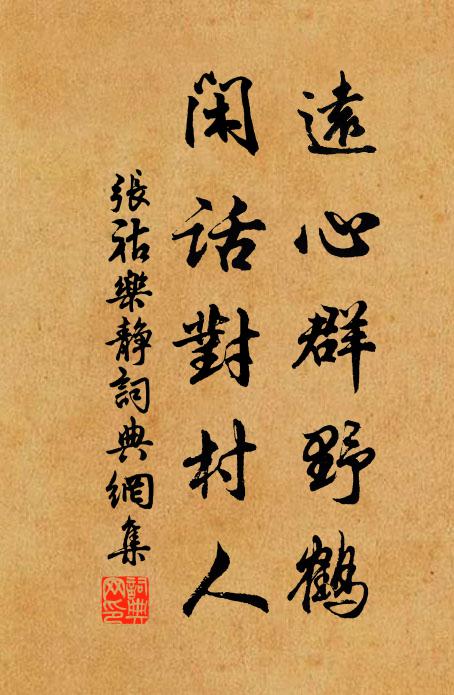 遠心群野鶴
閑話對村人
張祜樂靜詞典網集
詞典網印